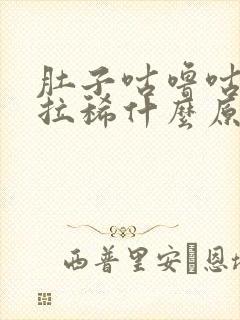 肚子咕噜咕
拉稀什麼原
西普里安 恩